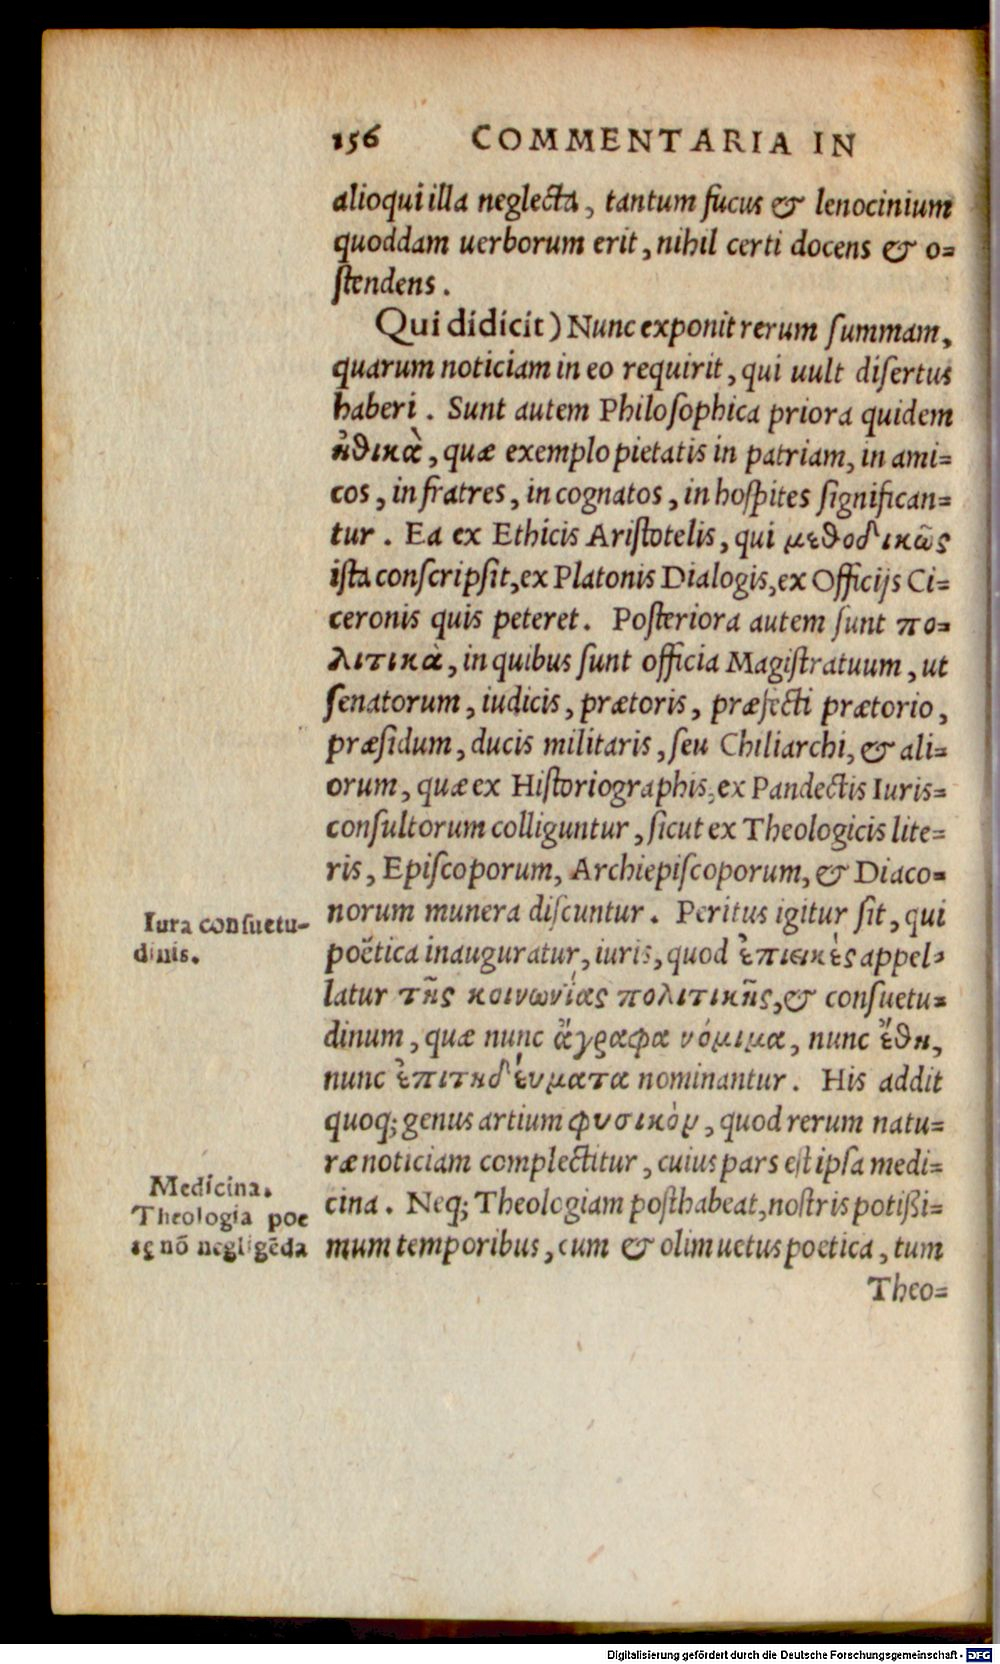 156 COMMENTARIA IN
alioqui illa neglecta, tantum fucus & lenocinium
quoddam uerborum erit, nihil certi docens & o=
ſtendens.
Qui didicit) Nunc exponit rerum ſummam,
quarum noticiam in eo requirit, qui uult diſertus
haberi. Sunt autem Philoſophica priora quidem
ἠθικὰ, quæ exemplo pietatis in patriam, in ami=
cos, in fratres, in cognatos, in hoſpites ſignifican=
tur. Ea ex Ethicis Ariſtotelis, qui μεθοδικῶς
iſta conſcripſit, ex Platonis Dialogis, ex Officijs Ci=
ceronis quis peteret. Poſteriora autem ſunt πο=
λιτικὰ, in quibus ſunt officia Magiſtratuum, ut
ſenatorum, iudicis, prætoris, præfecti prætorio,
præſidum, ducis militaris, ſeu Chiliarchi, & ali=
orum, quæ ex Hiſtoriographis, ex Pandectis Iuris=
conſultorum colliguntur, ſicut ex Theologicis lite=
ris, Epiſcoporum, Archiepiſcoporum, & Diaco=
Iura conſuetu-
dinis.
norum munera diſcuntur. Peritus igitur ſit, qui
poëtica inauguratur, iuris, quod ἐπιεικὲς appel=
latur τῆς κοινωνίας πολιτικῆς, & conſuetu=
dinum, quæ nunc ἄγραφα νόμιμα, nunc ἔθη,
nunc ἐπιτηδεύματα nominantur. His addit
quoq; genus artium φυσικὸν, quod rerum natu=
ræ noticiam complectitur, cuius pars eſt ipſa medi=
Medicina.
Theologia poe
tę nō negligēda
cina. Neq; Theologiam poſthabeat, noſtris potißi=
mum temporibus, cum & olim uetus poetica, tum
Theo=
Digitalisierung gefördert durch die Deutsche Forschungsgemeinschaft - DFG